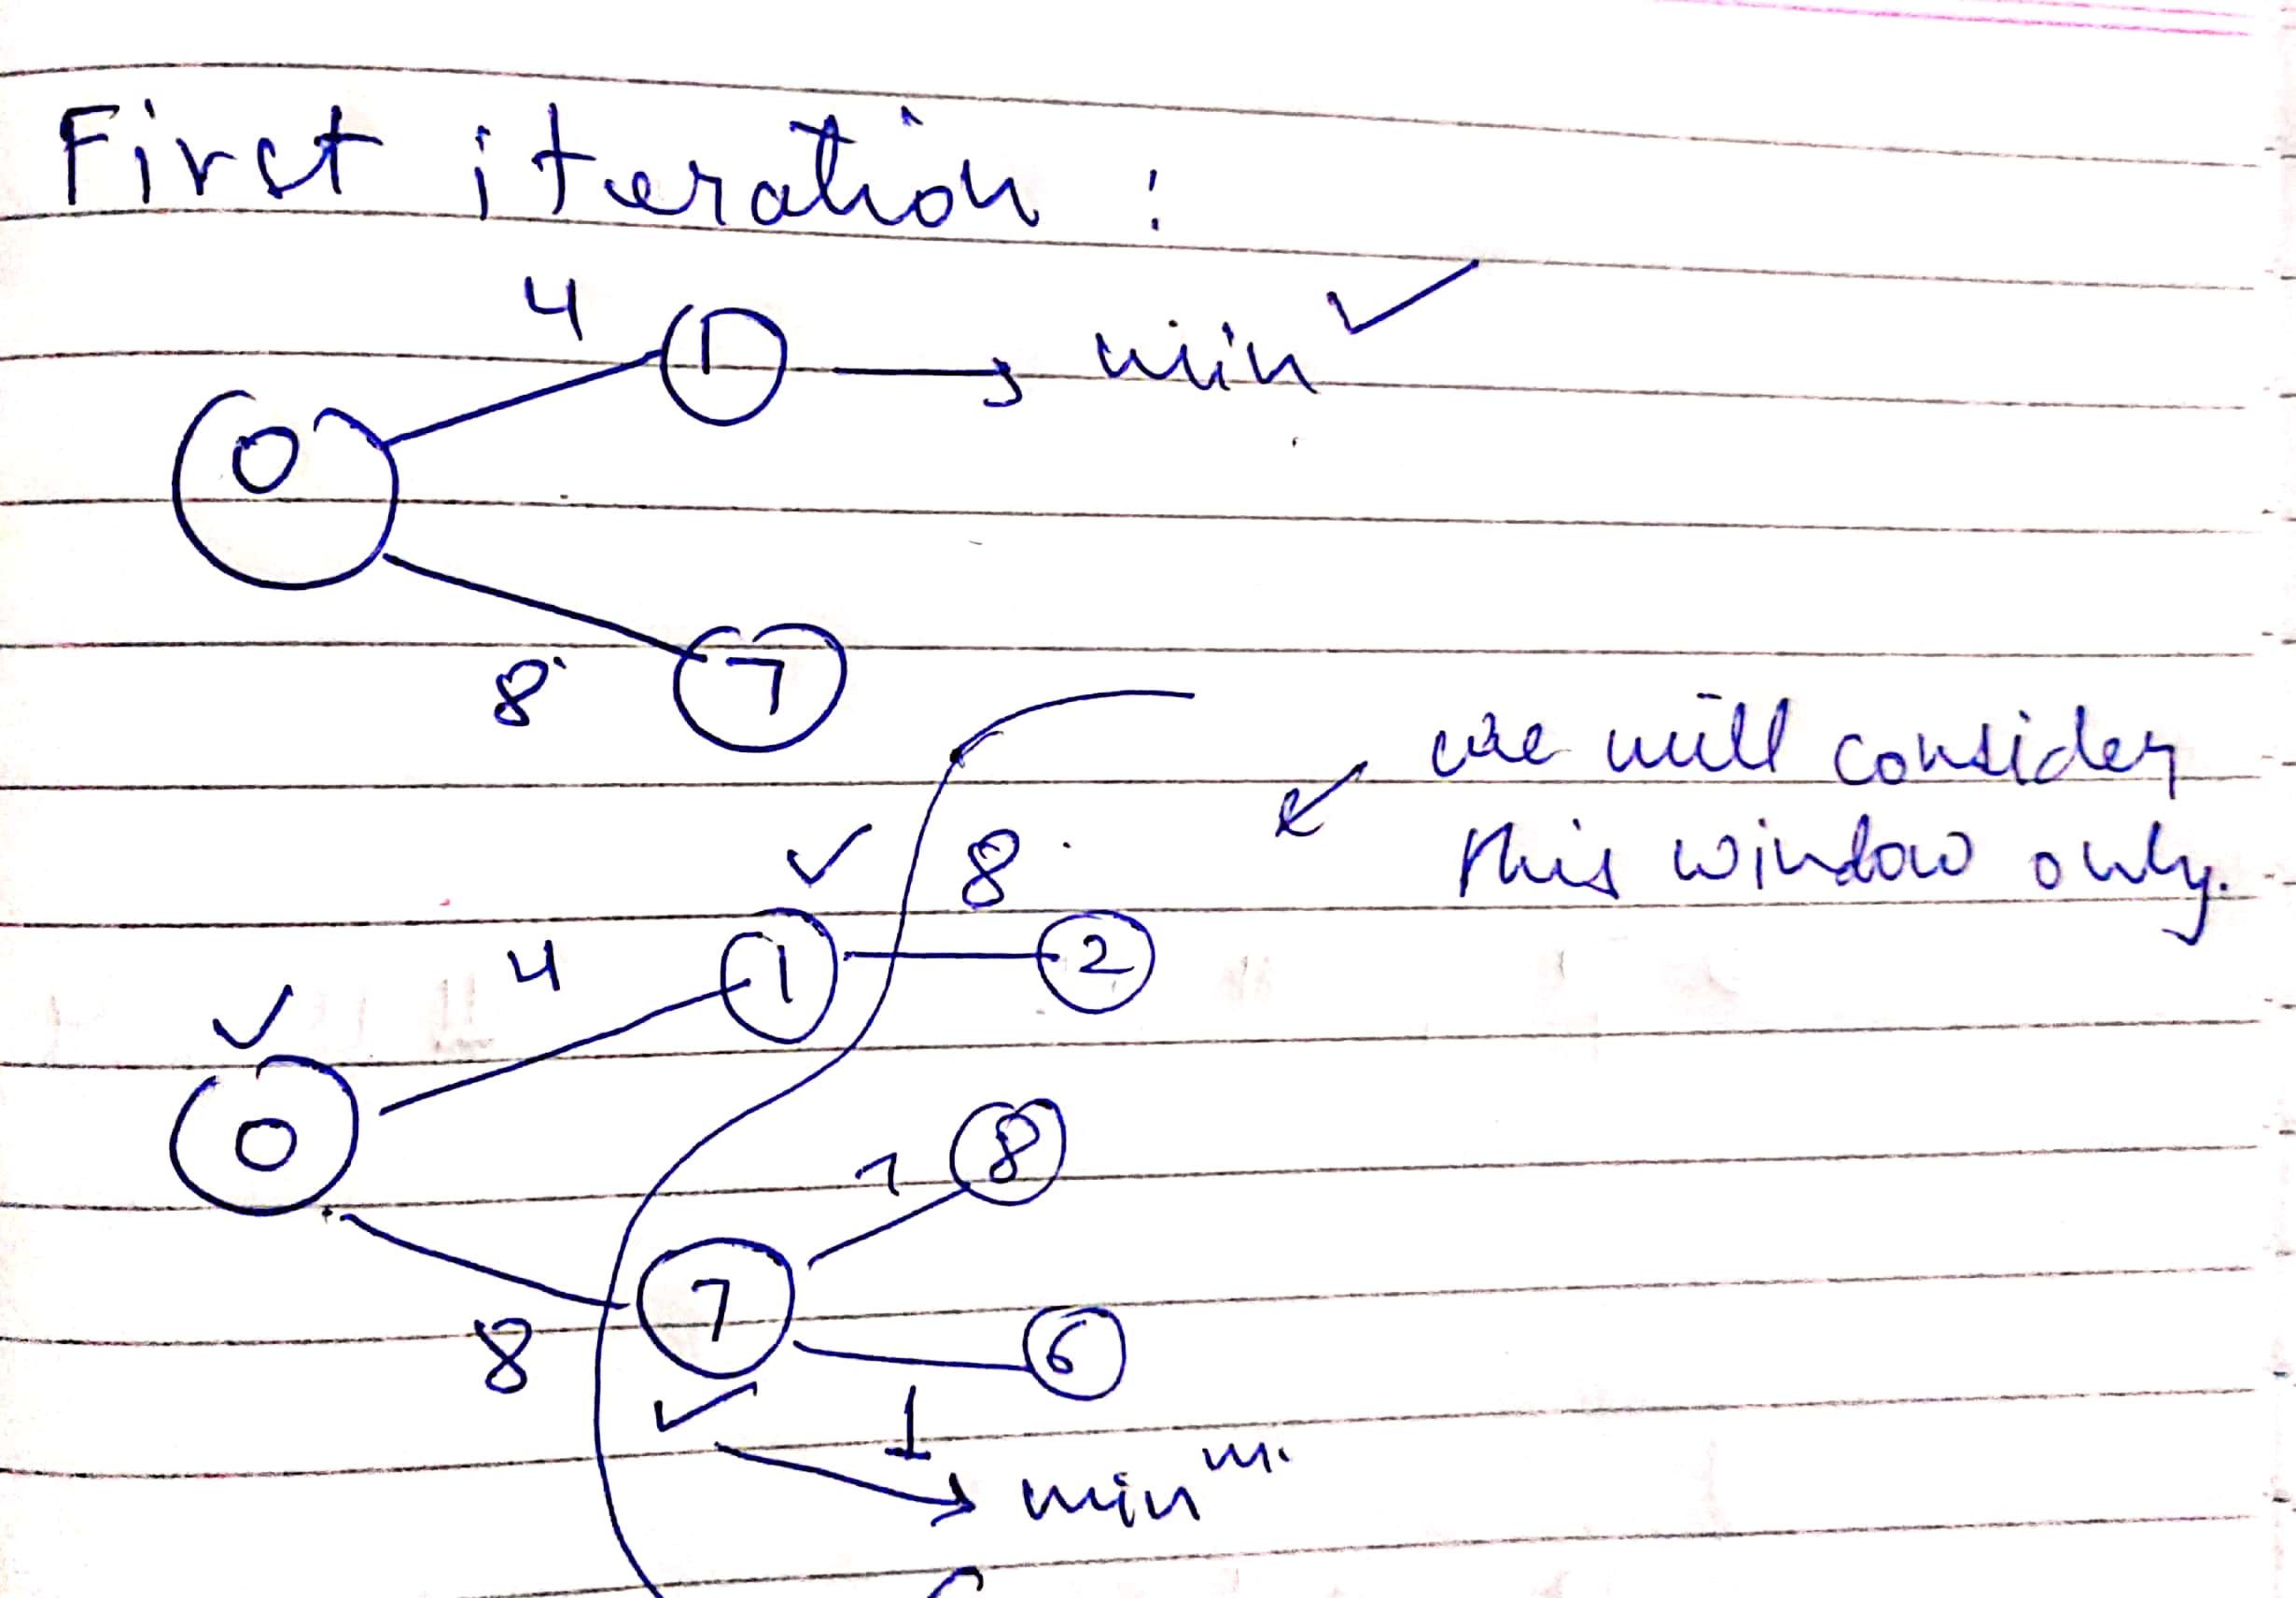 First iteration :
4
1 → min ✓
0
8
7
we will consider
this window only.
✓ 8
4 1 2
✓
0
1 8
7
8 6
✓ 1
→ minm.